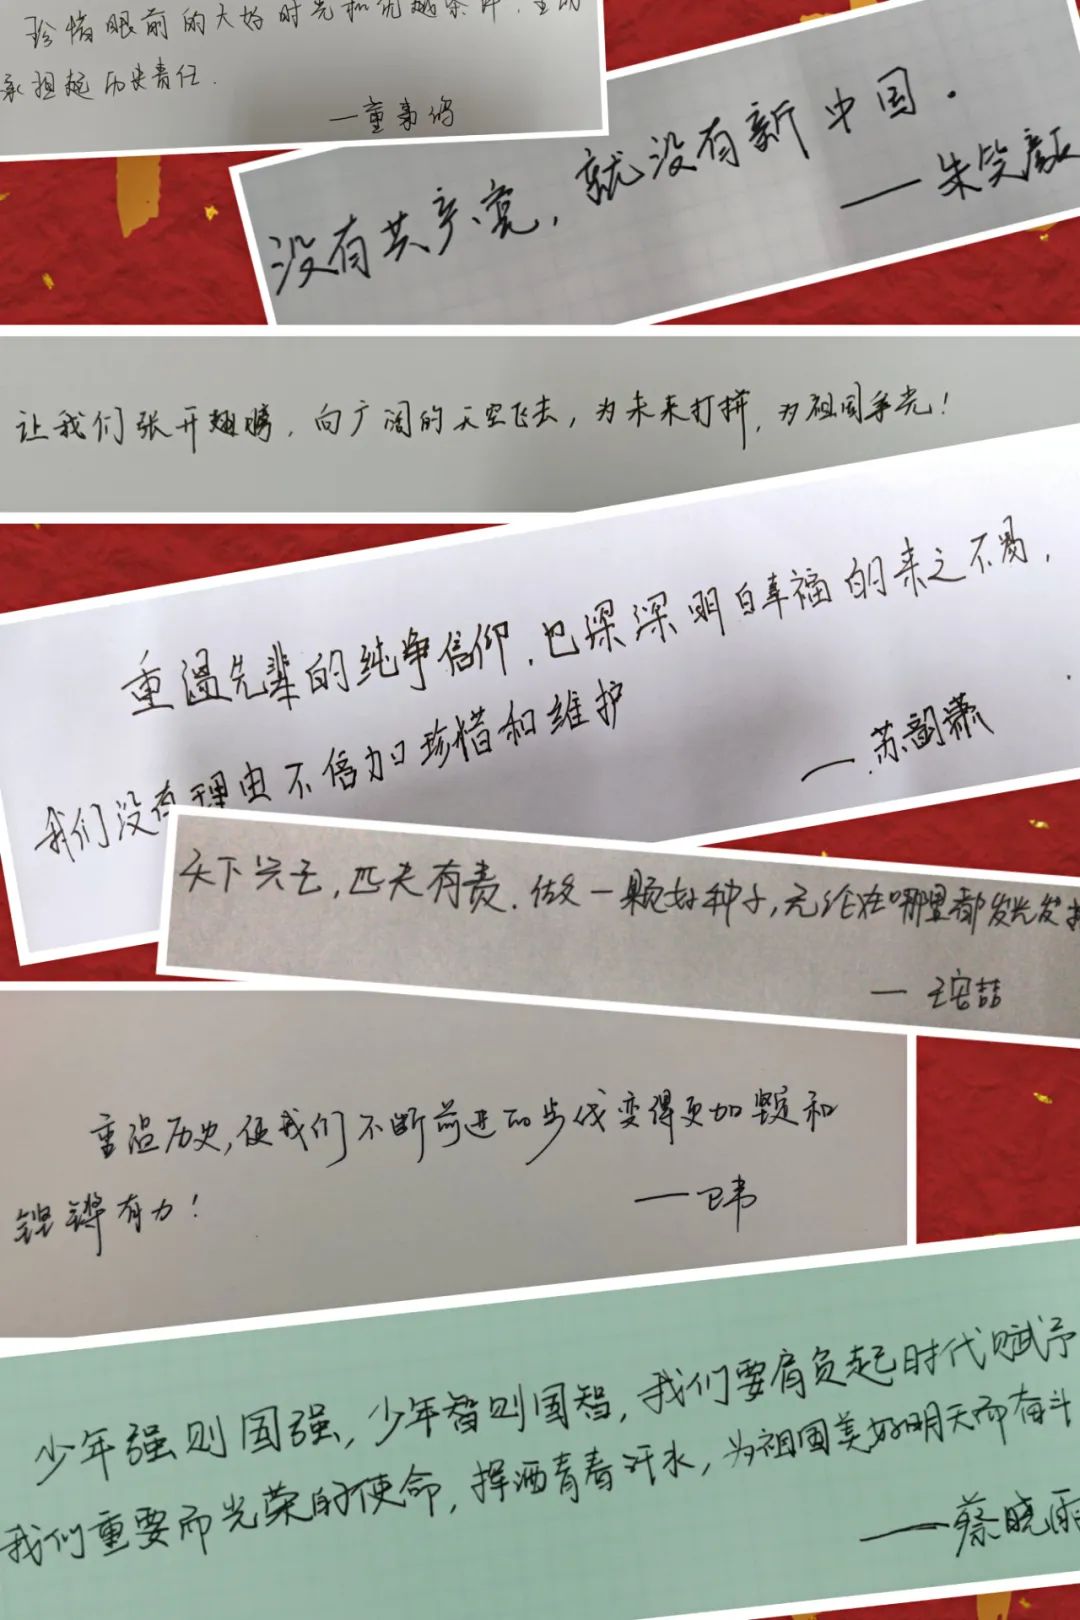 珍惜眼前的大好时光和优越条件，主动
承担起历史责任．
没有共产党，就没有新中国．
——朱笑颜
让我们张开翅膀，向广阔的天空飞去，为未来打拼，为祖国争光！
重温先辈的纯净信仰，也深深明白幸福的来之不易，
我们没有理由不倍加珍惜和维护
——苏韵潇
天下兴亡，匹夫有责．做一颗好种子，无论在哪里都发光发
重温历史，使我们不断前进的步伐变得更加坚定和
铿锵有力！
少年强则国强，少年智则国智，我们要肩负起时代赋予
我们重要而光荣的使命，挥洒青春汗水，为祖国美好明天而奋斗
——蔡晓雨